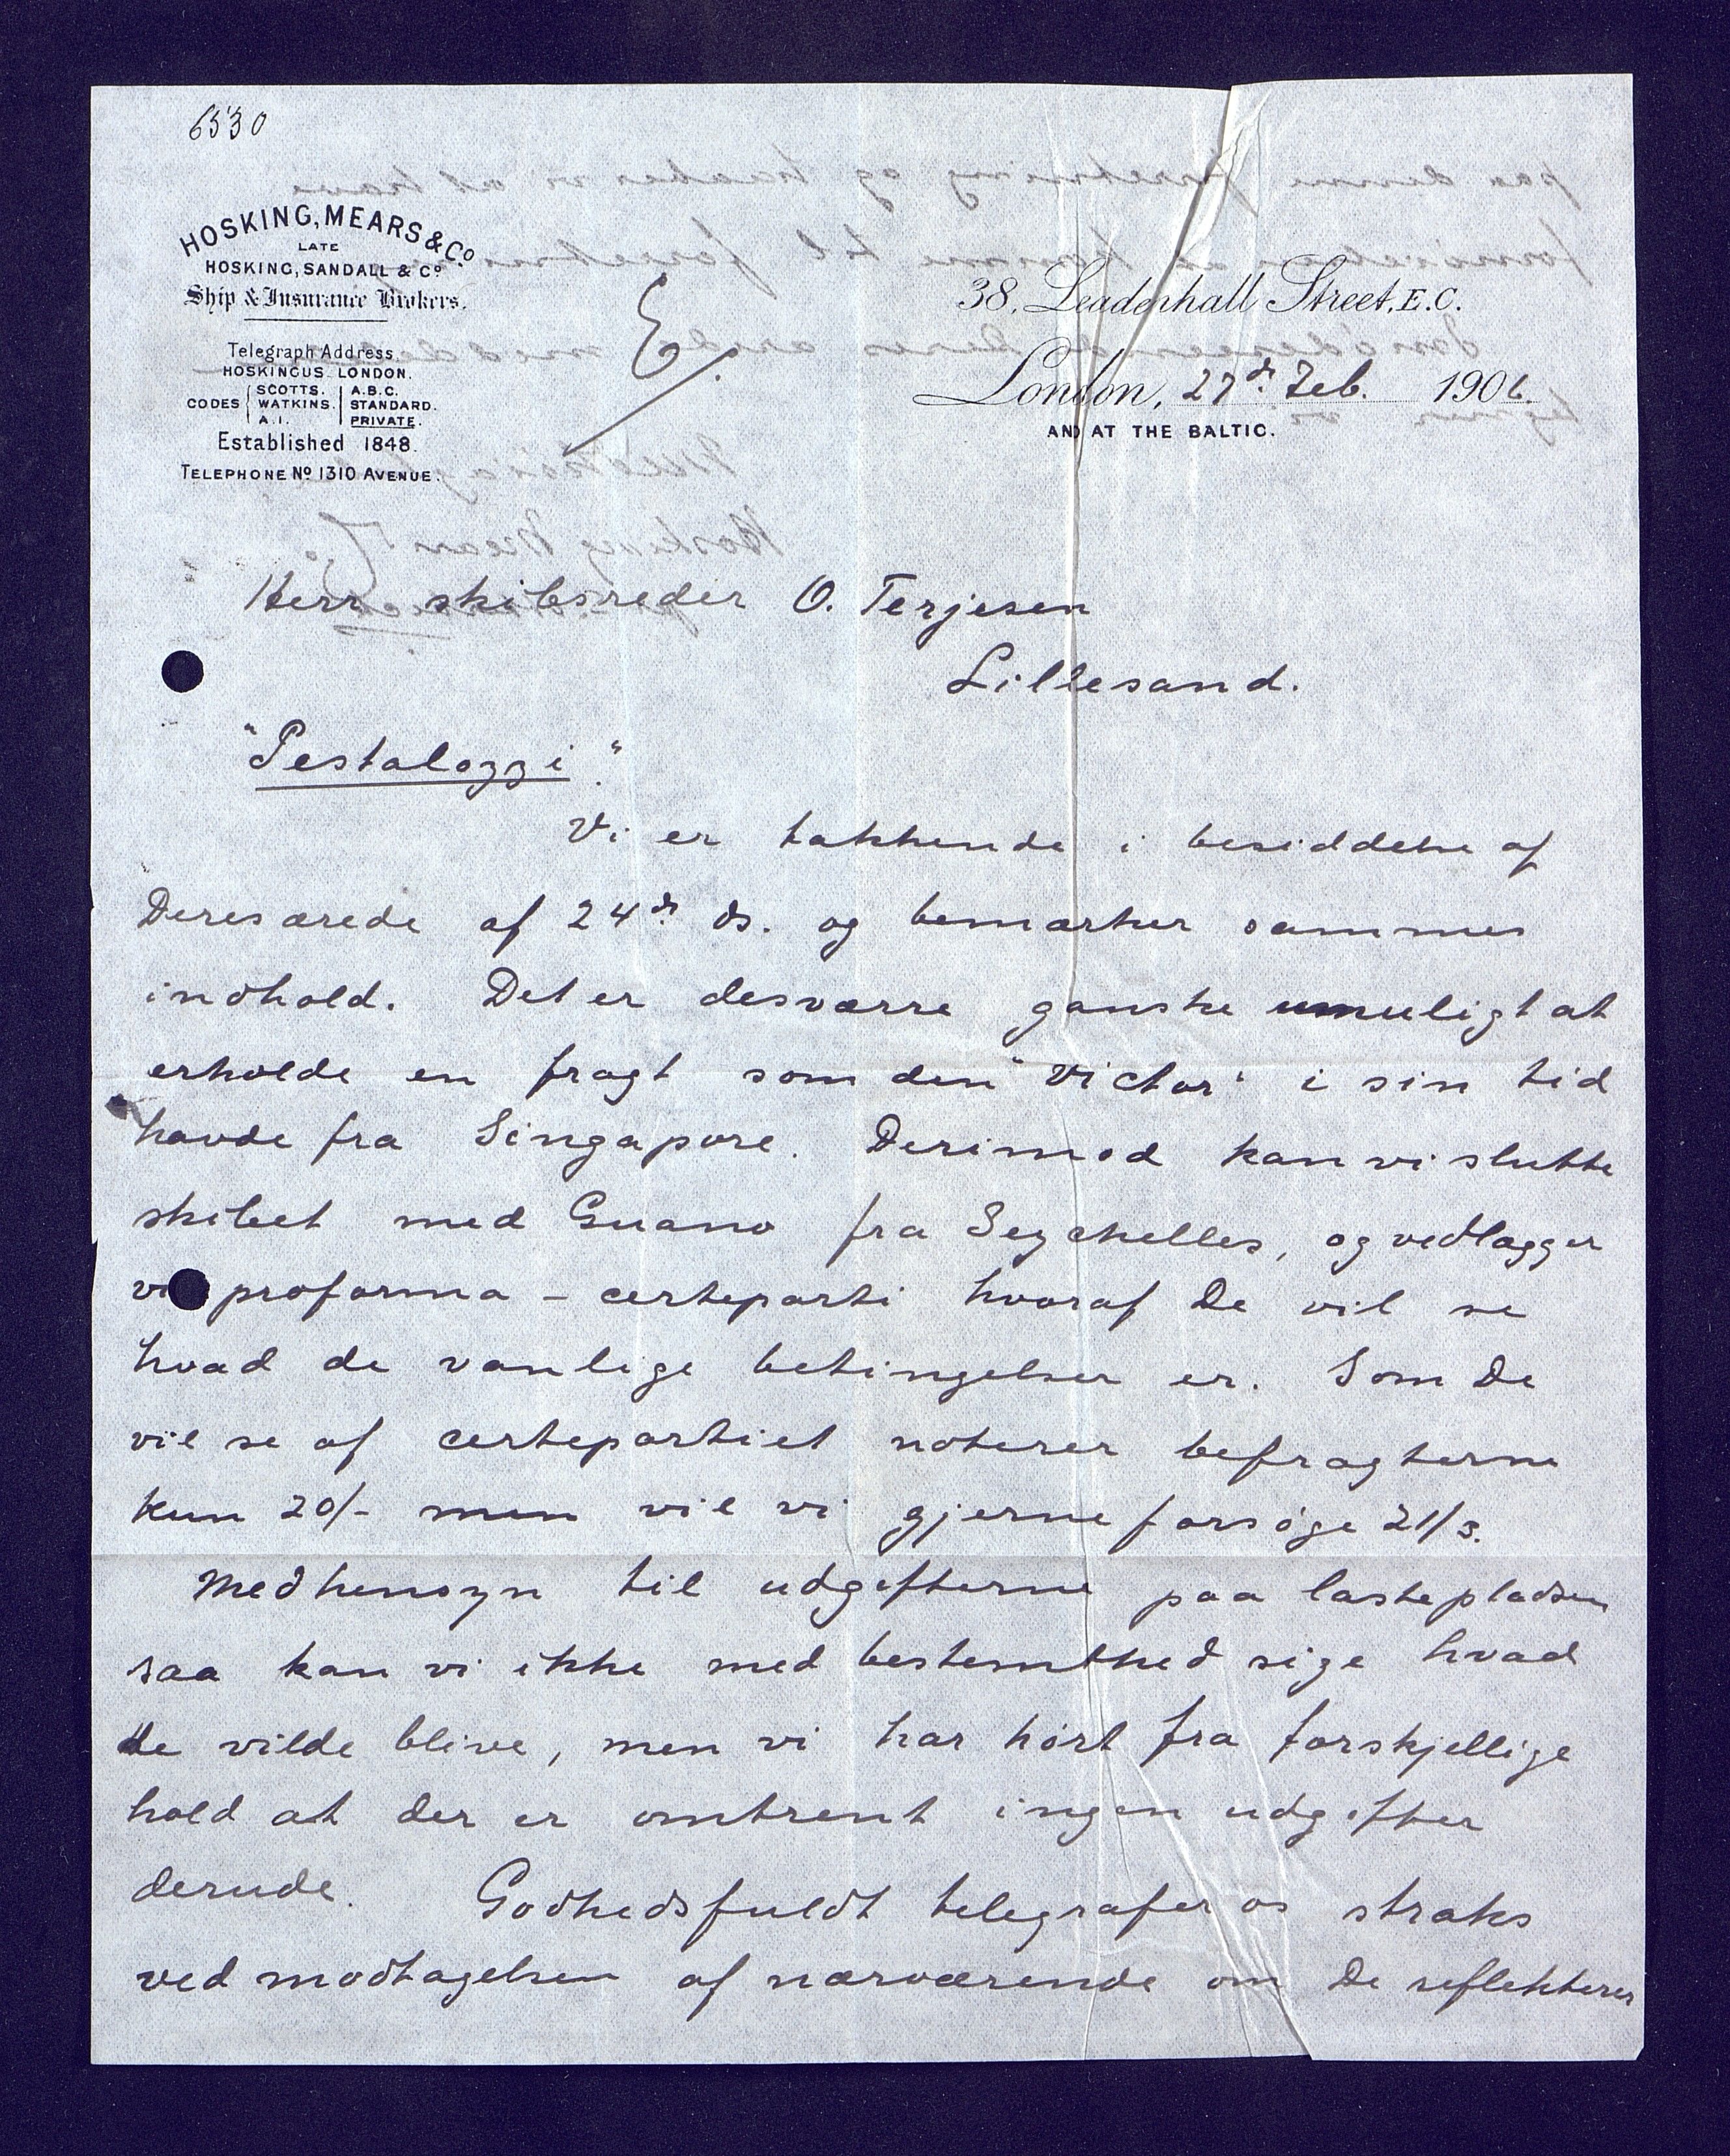 6530
HOSKING, MEARS & Co.
LATE
HOSKING, SANDALL & Co.
Ship & Insurance Brokers.
Telegraph Address
HOSKINGUS LONDON.
CODES SCOTTS. WATKINS. A.I. A.B.C. STANDARD. PRIVATE.
Established 1848.
TELEPHONE No 1310 AVENUE.
E/.
38, Leadenhall Street, E.C.
London, 27d. Feb. 1906.
AND AT THE BALTIC.
Herr skibsreder O. Terjesen
Lillesand.
"Pestalozzi".
Vi er takkende i besiddelse af
Deres ærede af 24d. ds. og bemærker sammes
indhold. Det er desværre ganske umuligt at
erholde en fragt som den "Victor" i sin tid
havde fra Singapore. Derimod kan vi slutte
skibet med Guano fra Seychelles, og vedlægger
vi proforma - certeparti hvoraf De vil se
hvad de vanlige betingelser er. Som De
vil se af certepartiet noterer befragterne
kun 20/- men vil vi gjerne forsøge 21/3.
Med hensyn til udgifterne paa lastepladsen
saa kan vi ikke med bestemthed sige hvad
de vilde blive, men vi har hørt fra forskjellige
hold at der er omtrent ingen udgifter
derude. Godhedsfuldt telegrafer os straks
ved modtagelsen af nærværende om De reflekterer